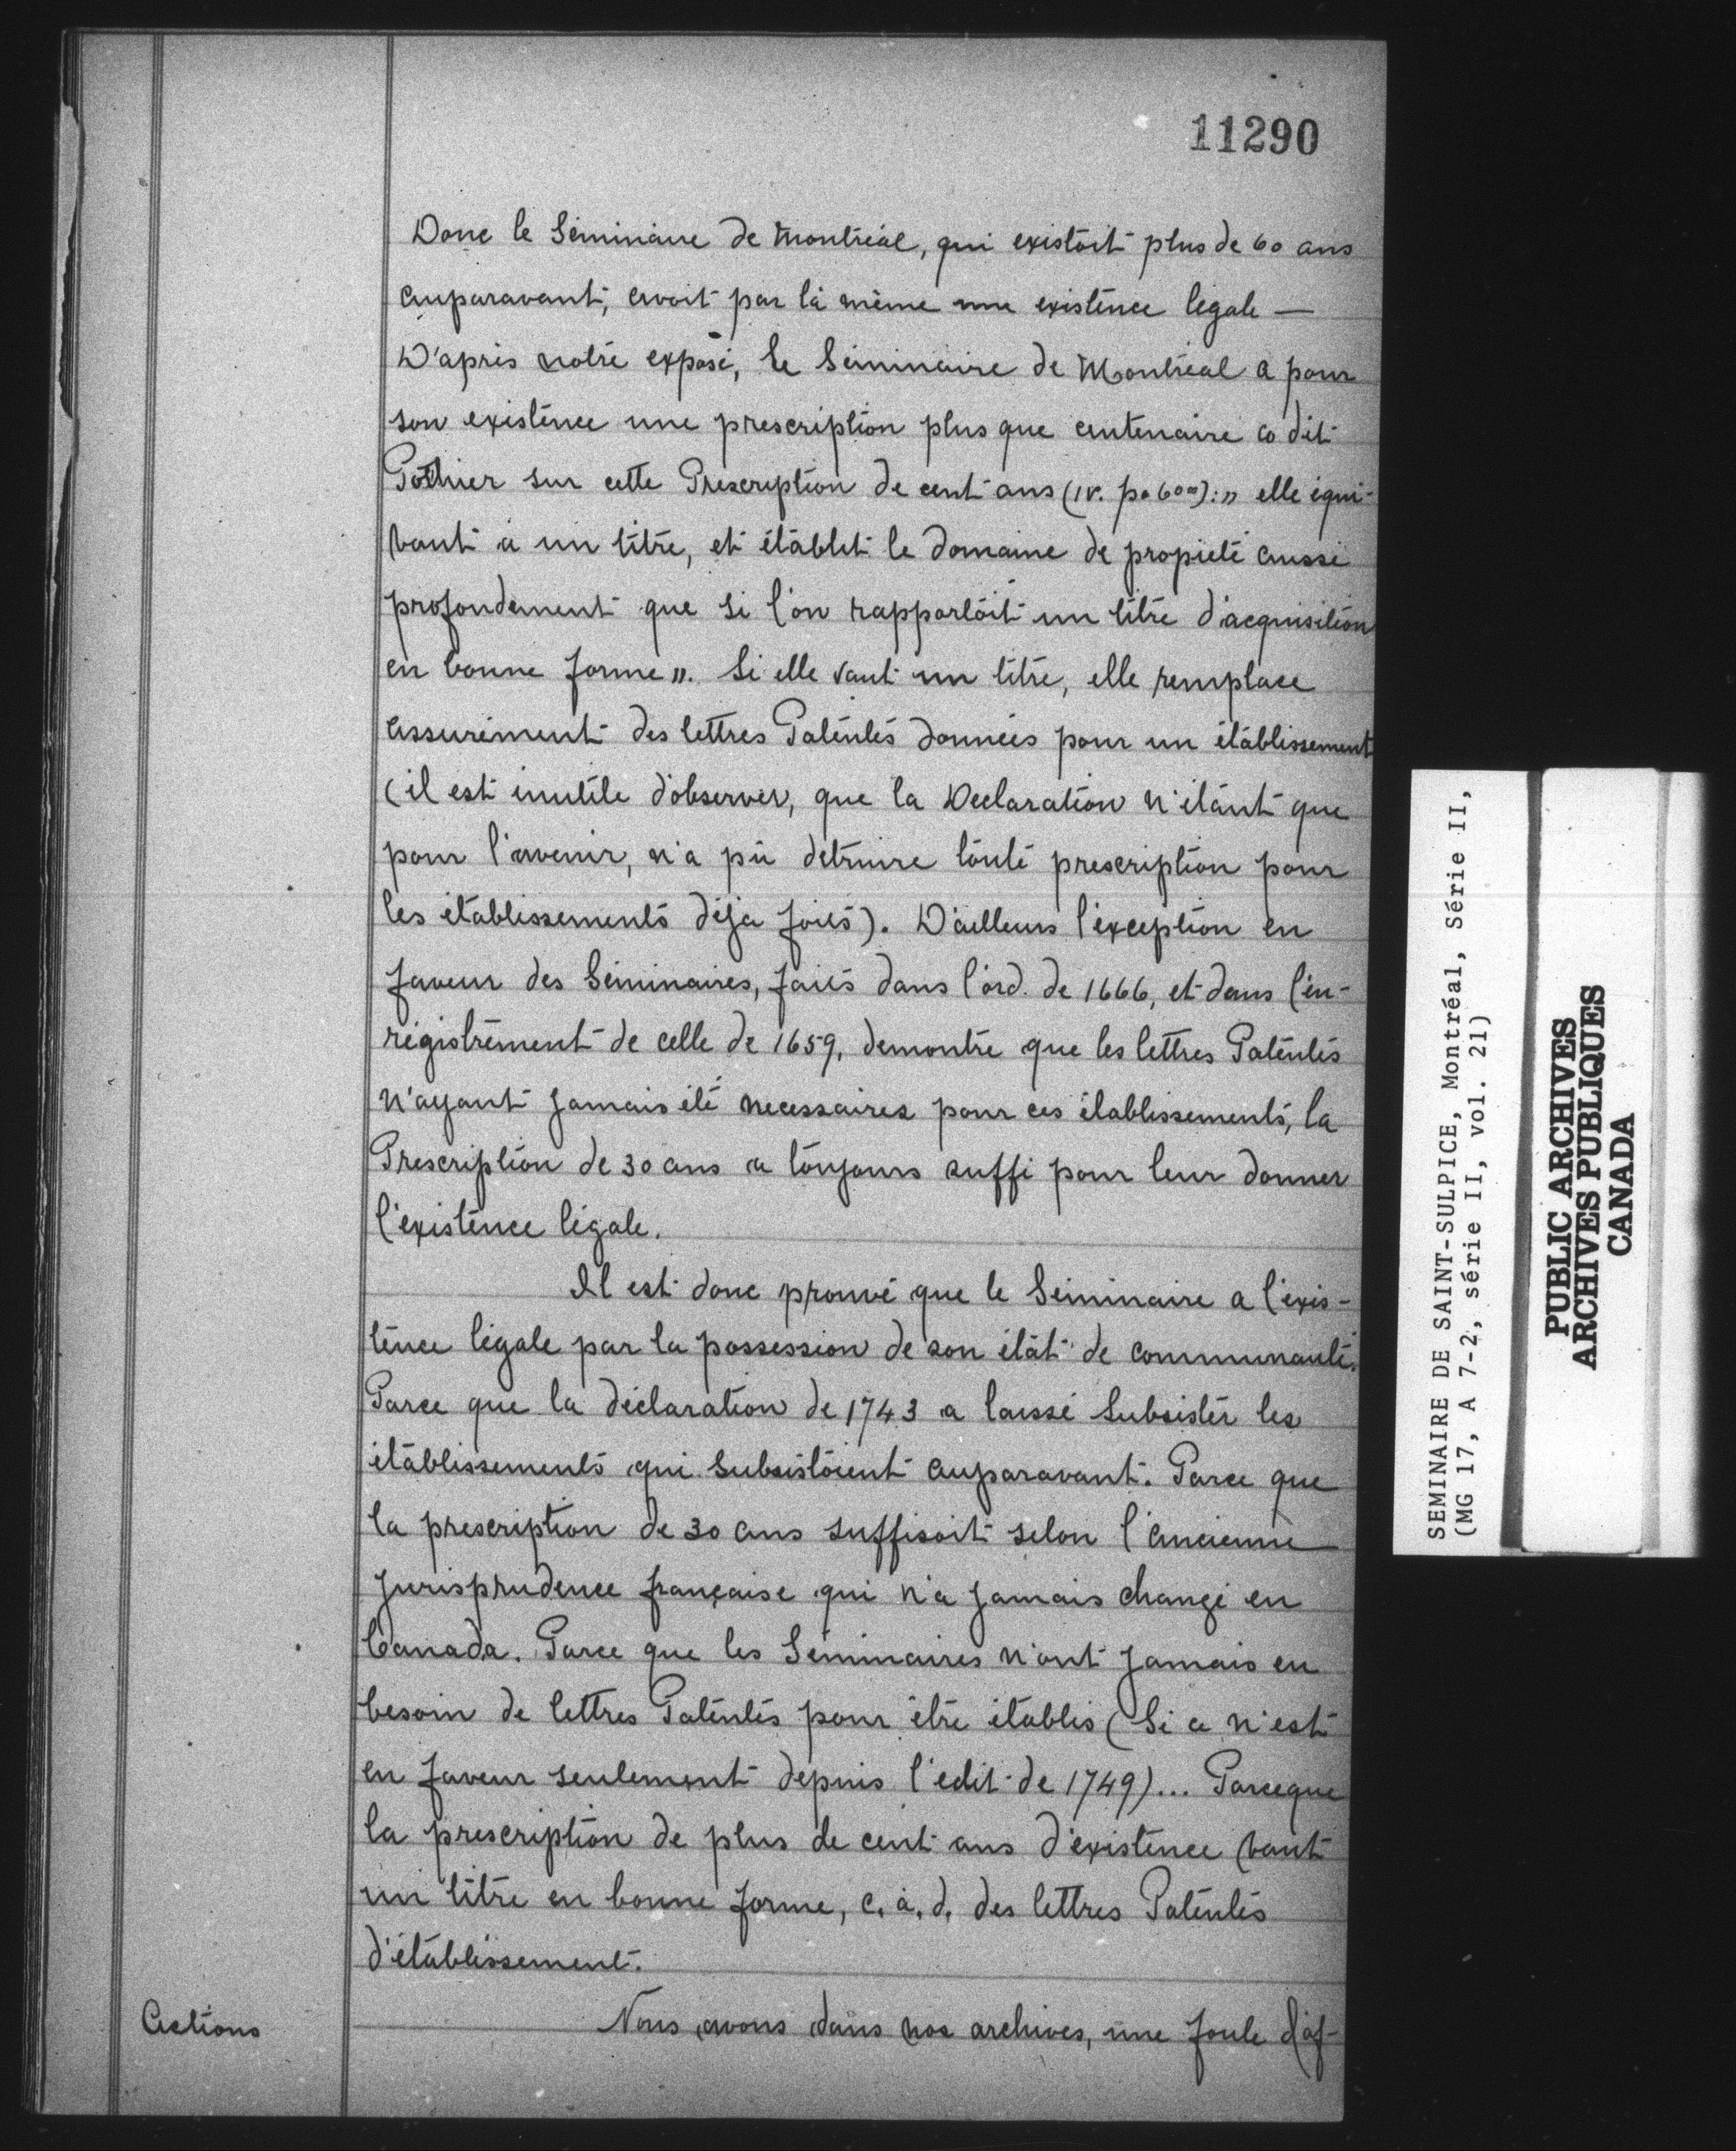 11290
Donc le Séminaire de Montréal, qui existoit plus de 60 ans
auparavant, avoit par là même une existence légale —
D'après notre exposé, le Séminaire de Montréal a pour
son existence une prescription plus que centenaire co dit
Pothier sur cette Prescription de cent ans (IV. p. 600): " elle équi-
vaut à un titre, et établit le domaine de propieté aussi
profondement que si l'on rapportoit un titre d'acquisition
en bonne forme ". Si elle vaut un titre, elle remplace
assurément des lettres Patentes données pour un établissement
(il est inutile d'observer, que la Declaration n'étant que
pour l'avenir, n'a pû détruire toute prescription pour
les établissements déja faits). D'ailleurs l'exception en
faveur des Séminaires, faite dans l'ord. de 1666, et dans l'en-
régistrement de celle de 1659, demontre que les lettres Patentes
n'ayant jamais été necessaires pour ces établissements, la
Prescription de 30 ans a toujours suffi pour leur donner
l'existence légale.
Il est donc prouvé que le Séminaire a l'exis-
tence légale par la possession de son état de communauté.
Parce que la déclaration de 1743 a laissé subsister les
établissements qui subsistoient auparavant. Parce que
la prescription de 30 ans suffisoit selon l'ancienne
jurisprudence française qui n'a jamais changé en
Canada. Parce que les Séminaires n'ont jamais eu
besoin de lettres Patentes pour être établis (Si ce n'est
en faveur seulement depuis l'edit de 1749)... Parceque
la prescription de plus de cent ans d'existence vaut
un titre en bonne forme, c. à. d. des lettres Patentes
d'établissement.
Actions
Nous avons dans nos archives, une foule d'af-
SEMINAIRE DE SAINT-SULPICE, Montréal, Série II,
(MG 17, A 7-2, série II, vol. 21)
PUBLIC ARCHIVES
ARCHIVES PUBLIQUES
CANADA